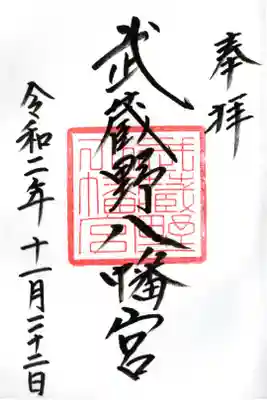 奉拝
武蔵野八幡宮
武蔵野八幡宮
令和二年十一月二十二日